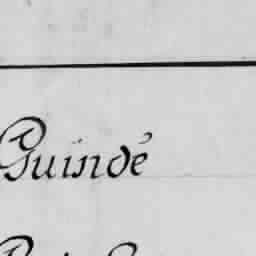 Guindé